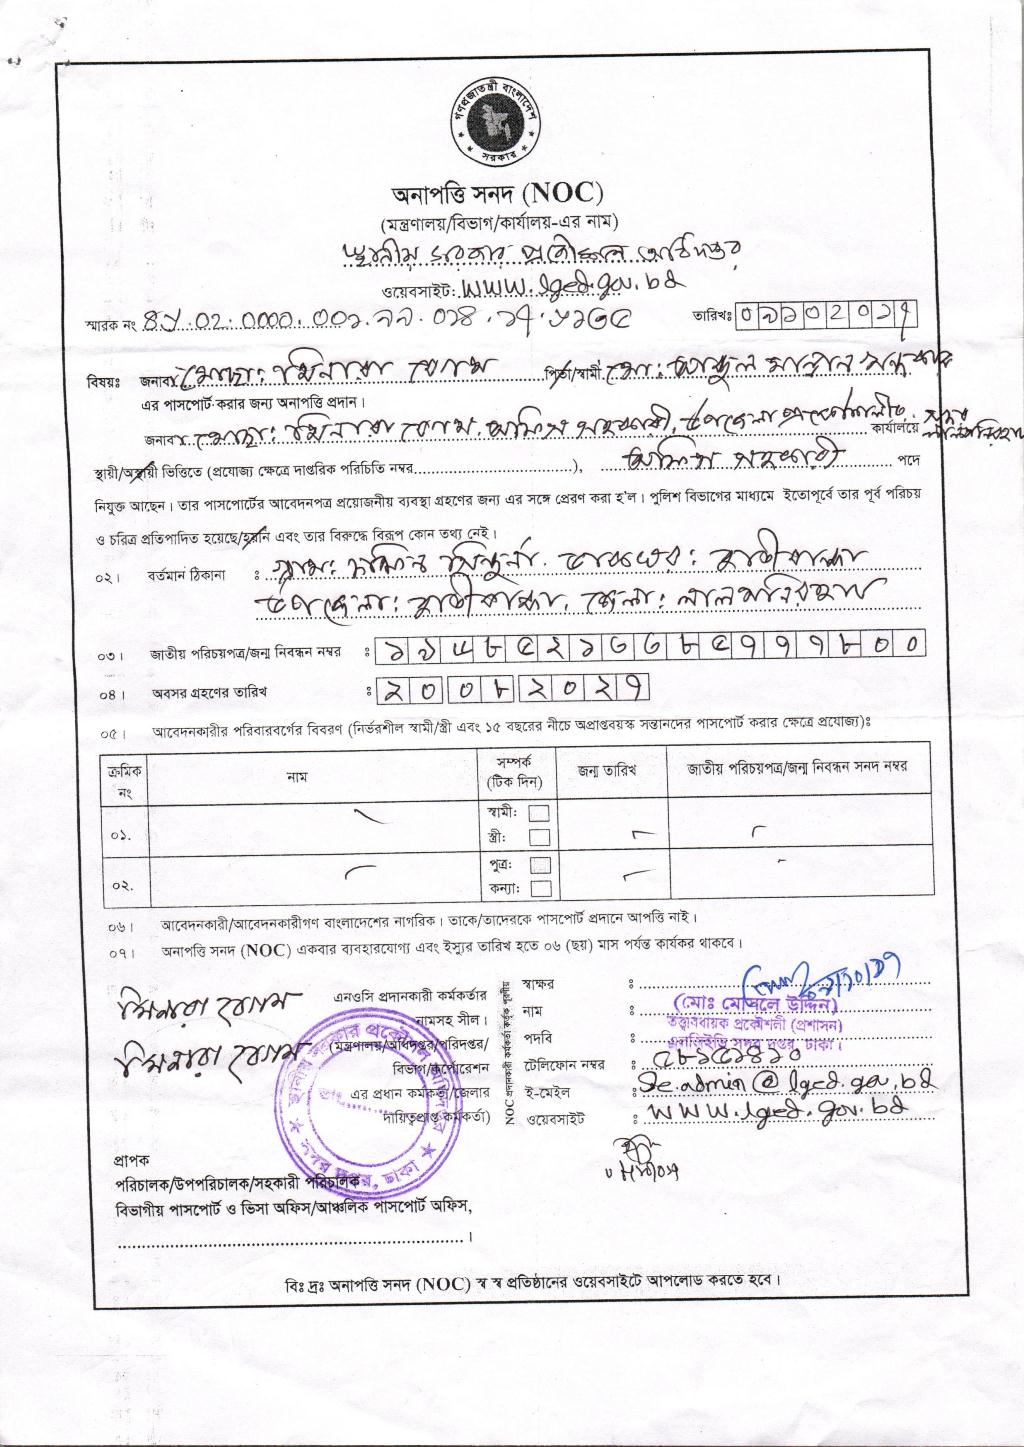 গণপ্রজাতন্ত্রী বাংলাদেশ
সরকার
অনাপত্তি সনদ (NOC)
(মন্ত্রণালয়/বিভাগ/কার্যালয়-এর নাম)
স্থানীয় সরকার প্রকৌশল অধিদপ্তর
ওয়েবসাইট: www.lged.gov.bd
স্মারক নং
তারিখঃ ০৯১০২০১৭
বিষয়ঃ জনাব মোছা: মিনারা বেগম পিতা/স্বামী মো: আব্দুল মান্নান
এর পাসপোর্ট করার জন্য অনাপত্তি প্রদান।
জনাব মোছা: মিনারা বেগম, অফিস সহকারী, উপজেলা প্রকৌশলীর কার্যালয়ে
স্থায়ী/অস্থায়ী ভিত্তিতে (প্রযোজ্য ক্ষেত্রে দাপ্তরিক পরিচিতি নম্বর), অফিস সহকারী পদে
নিযুক্ত আছেন। তার পাসপোর্টের আবেদনপত্র প্রয়োজনীয় ব্যবস্থা গ্রহণের জন্য এর সঙ্গে প্রেরণ করা হ'ল। পুলিশ বিভাগের মাধ্যমে ইতোপূর্বে তার পূর্ব পরিচয়
ও চরিত্র প্রতিপাদিত হয়েছে/হয়নি এবং তার বিরুদ্ধে বিরূপ কোন তথ্য নেই।
০২। বর্তমান ঠিকানা : গ্রাম: দক্ষিন সিন্দুর্না. ডাকঘর: হাতীবান্ধা
উপজেলা: হাতীবান্ধা, জেলা: লালমনিরহাট
০৩। জাতীয় পরিচয়পত্র/জন্ম নিবন্ধন নম্বর :
০৪। অবসর গ্রহণের তারিখ : ২০০৮২০২৭
০৫। আবেদনকারীর পরিবারবর্গের বিবরণ (নির্ভরশীল স্বামী/স্ত্রী এবং ১৫ বছরের নীচে অপ্রাপ্তবয়স্ক সন্তানদের পাসপোর্ট করার ক্ষেত্রে প্রযোজ্য)ঃ
ক্রমিক নং নাম সম্পর্ক (টিক দিন) জন্ম তারিখ জাতীয় পরিচয়পত্র/জন্ম নিবন্ধন সনদ নম্বর
০১. স্বামী:
স্ত্রী:
০২. পুত্র:
কন্যা:
০৬। আবেদনকারী/আবেদনকারীগণ বাংলাদেশের নাগরিক। তাকে/তাদেরকে পাসপোর্ট প্রদানে আপত্তি নাই।
০৭। অনাপত্তি সনদ (NOC) একবার ব্যবহারযোগ্য এবং ইস্যুর তারিখ হতে ০৬ (ছয়) মাস পর্যন্ত কার্যকর থাকবে।
মিনারা বেগম
মিনারা বেগম
এনওসি প্রদানকারী কর্মকর্তার
নামসহ সীল।
(মন্ত্রণালয়/অধিদপ্তর/পরিদপ্তর/
বিভাগ/কর্পোরেশন
এর প্রধান কর্মকর্তা/জেলার
দায়িত্বপ্রাপ্ত কর্মকর্তা)
স্থানীয় সরকার প্রকৌশল অধিদপ্তর
সদর দপ্তর, ঢাকা
NOC প্রদানকারী কর্মকর্তা কর্তৃক পূরণীয়
স্বাক্ষর :
নাম : (মোঃ মোখলে উদ্দিন)
পদবি : তত্ত্বাবধায়ক প্রকৌশলী (প্রশাসন)
এলজিইডি সদর দপ্তর, ঢাকা।
টেলিফোন নম্বর :
ই-মেইল : Se.admin@lged.gov.bd
ওয়েবসাইট : www.lged.gov.bd
প্রাপক
পরিচালক/উপপরিচালক/সহকারী পরিচালক
বিভাগীয় পাসপোর্ট ও ভিসা অফিস/আঞ্চলিক পাসপোর্ট অফিস,
বিঃ দ্রঃ অনাপত্তি সনদ (NOC) স্ব স্ব প্রতিষ্ঠানের ওয়েবসাইটে আপলোড করতে হবে।